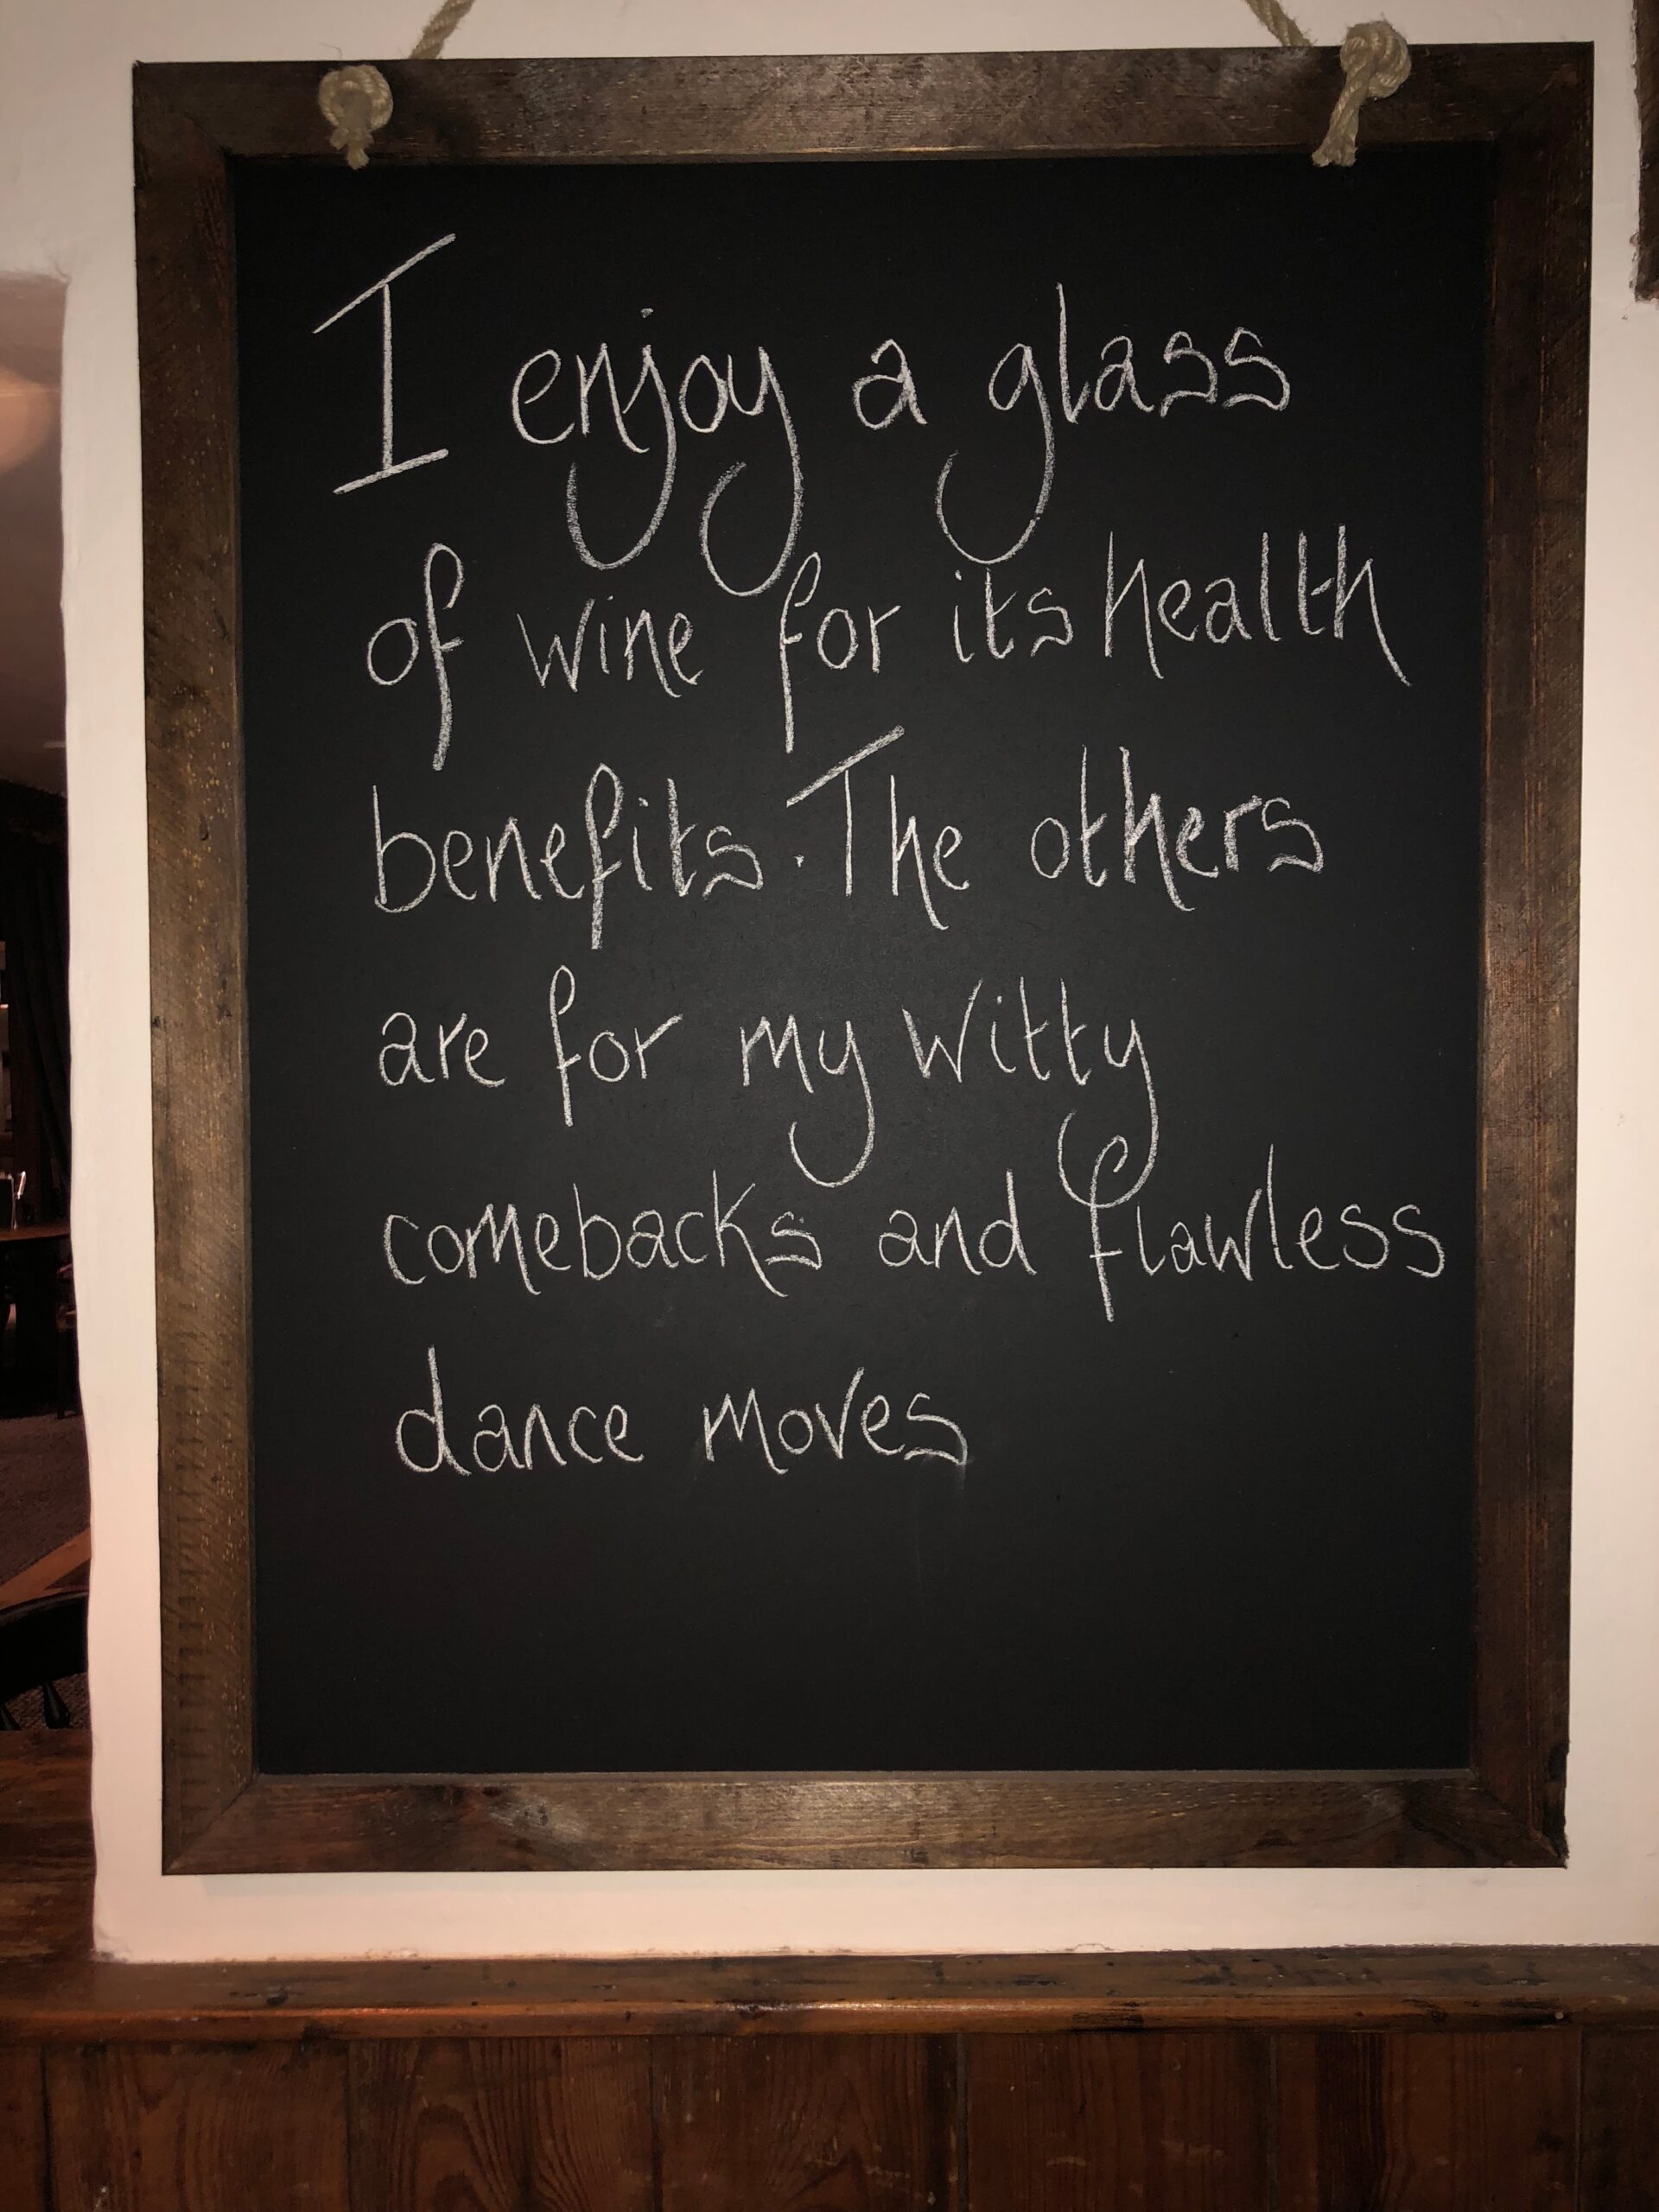 I enjoy a glass
of wine for its health
benefits. The others
are for my witty
comebacks and flawless
dance moves